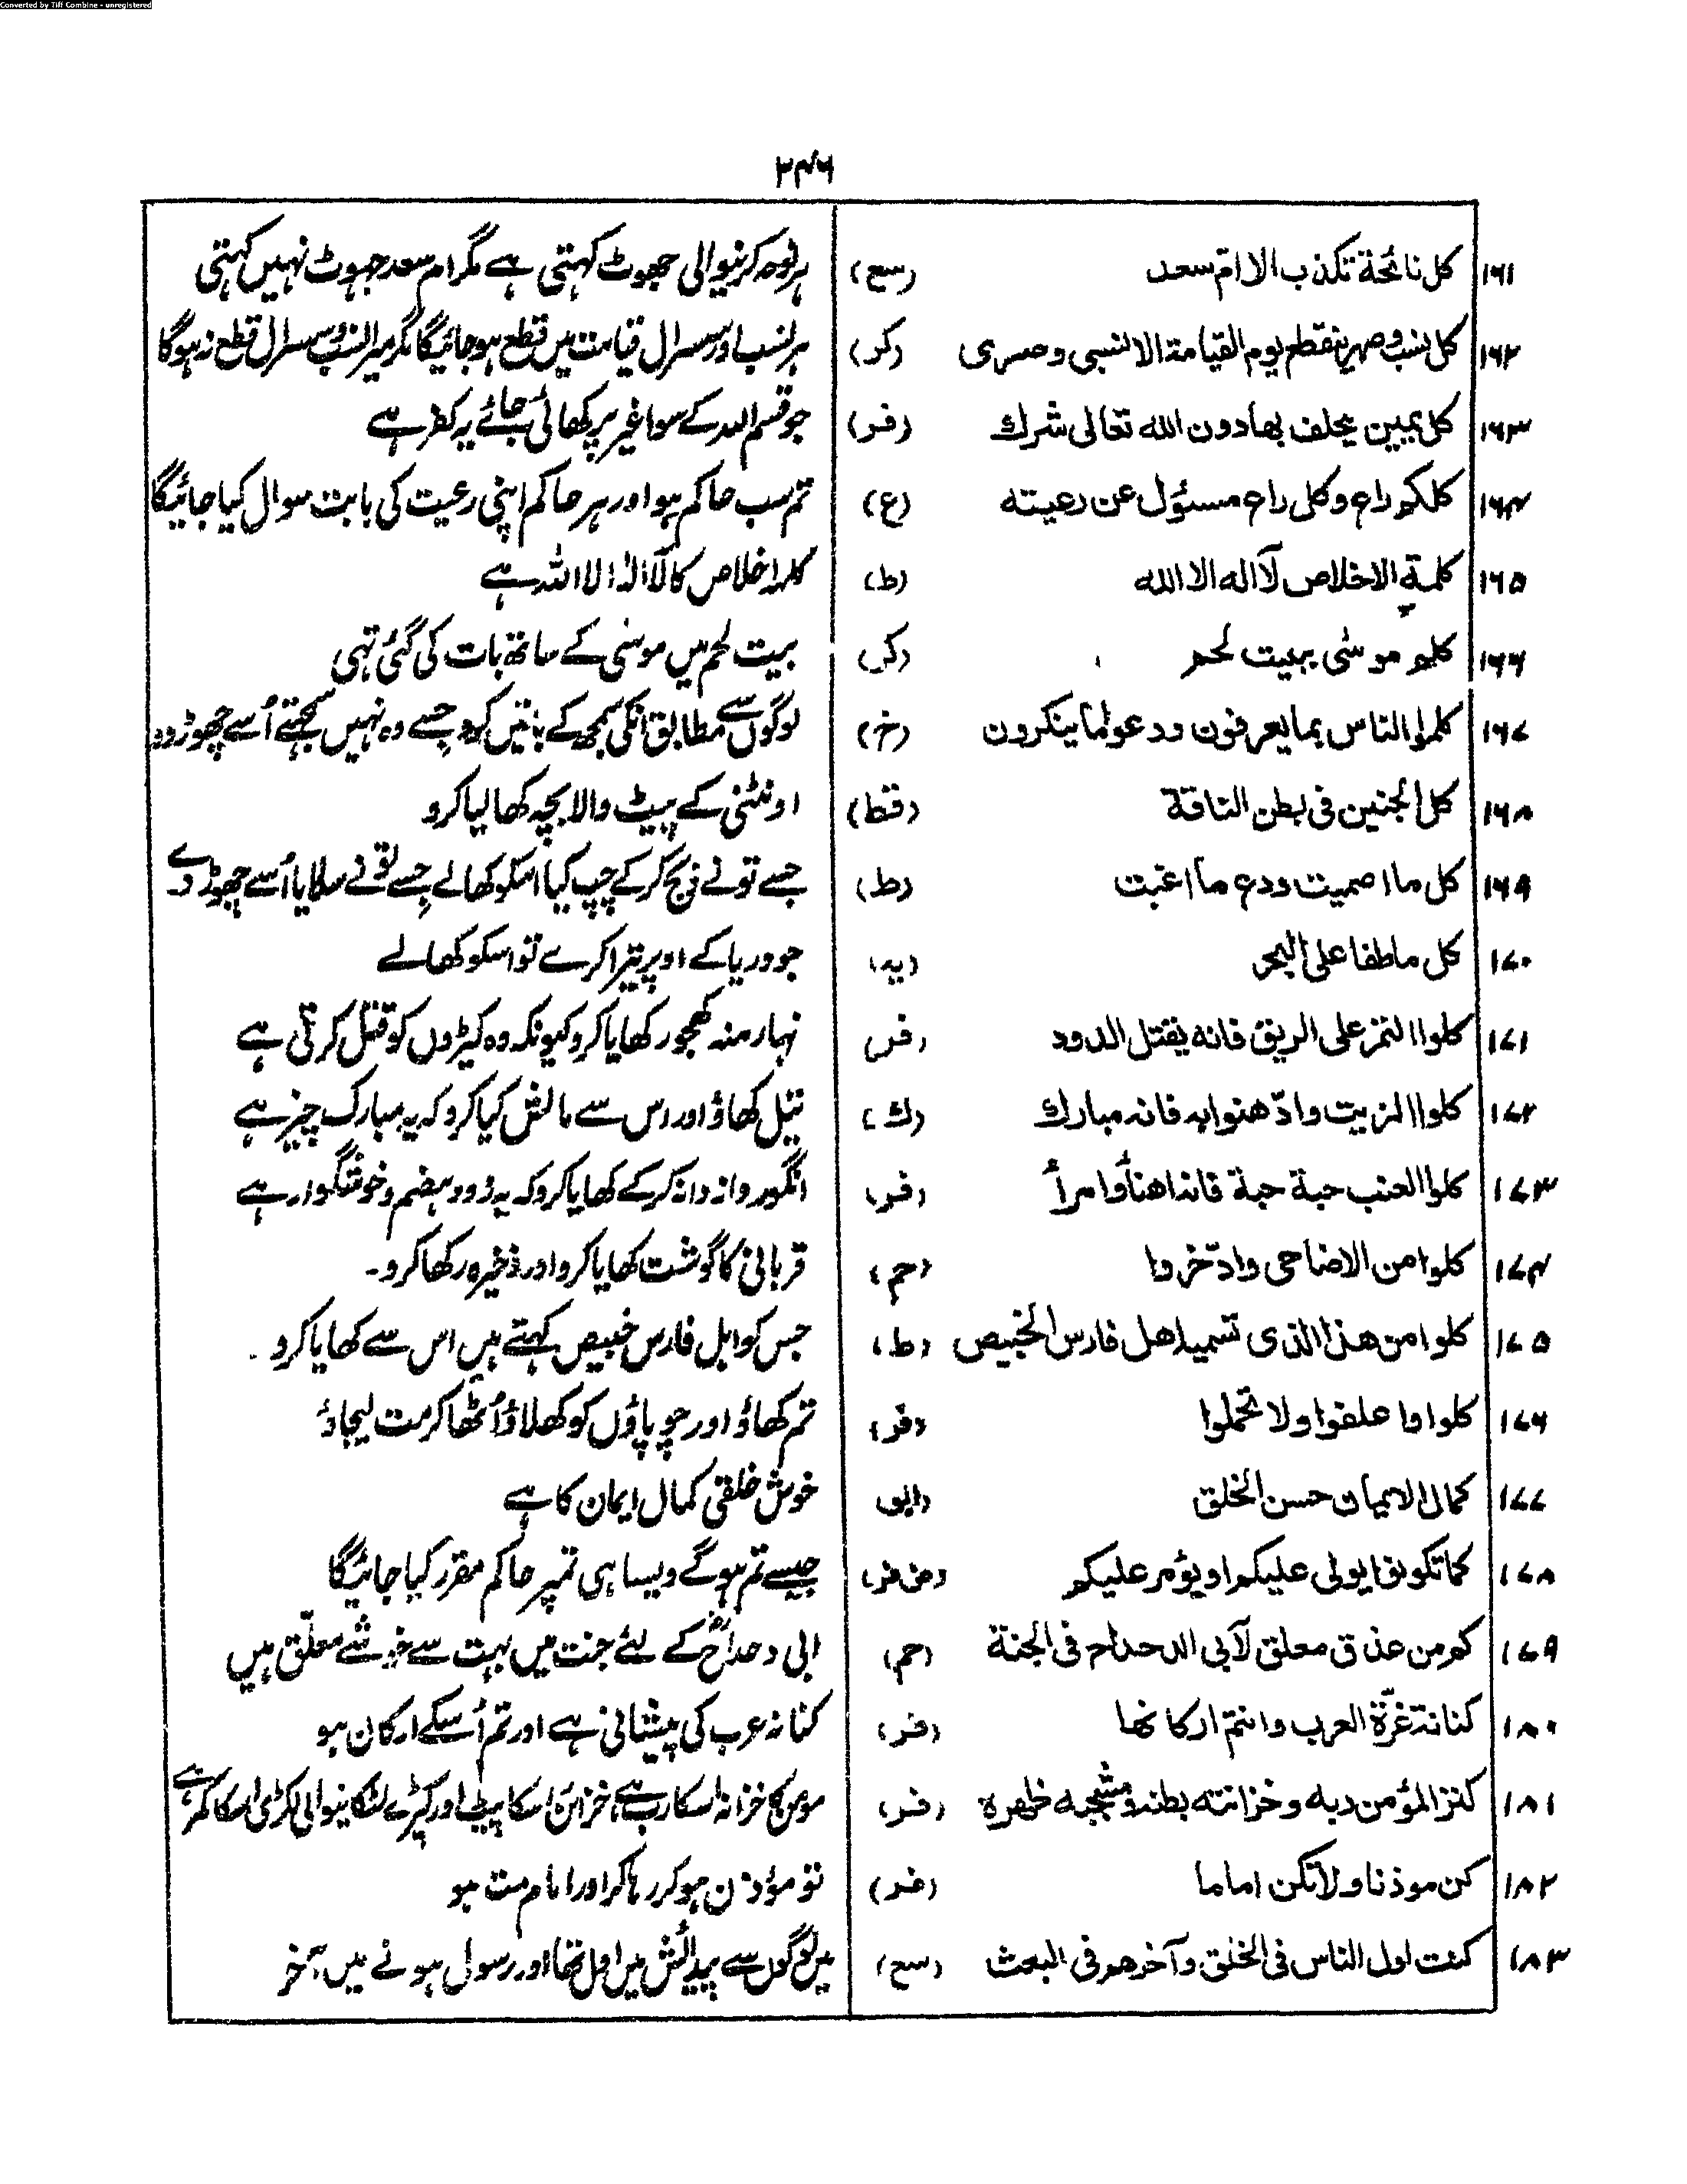 Converted by Tiff Combine - unregistered
۲۴۶
۱۶۱ کل نائحة تکذب الا ام سعد (سع) ہر نوحہ کرنیوالی جھوٹ کہتی ہے مگر ام سعد جہوٹ نہیں کہتی
۱۶۲ کل نسب وصهر ینقطع یوم القیامة الا نسبی وصهری (کر) ہر نسب اور سسرال قیامت میں قطع ہو جائیگا مگر میرا نسب و سسرال قطع نہ ہوگا
۱۶۳ کل یمین یحلف بها دون الله تعالی شرك (فر) جو قسم اللہ کے سوا غیر پر کھائی جائے یہ کفر ہے
۱۶۴ کلکم راع وکل راع مسئول عن رعیته (ع) تم سب حاکم ہو اور ہر حاکم اپنی رعیت کی بابت سوال کیا جائیگا
۱۶۵ کلمة الاخلاص لآ اله الا الله (ط) کلمہ اخلاص کا لآ الہ الا اللہ ہے
۱۶۶ کلم موسٰی ببیت لحم (کر) بیت لحم میں موسٰی کے ساتھ بات کی گئی تہی
۱۶۷ کلموا الناس بما یعرفون ودعوا ما ینکرون (خ) لوگوں سے مطابق انکی سمجھ کے باتیں کرو جسے وہ نہیں سمجہتے اُسے چھوڑ دو
۱۶۸ کل الجنین فی بطن الناقة (قط) اونٹنی کے پیٹ والا بچہ کھا لیا کرو
۱۶۹ کل ما اصمیت ودع ما اغبت (ط) جسے تونے ذبح کرکے چپ کیا اسکو کھالے جسے تونے سلایا اُسے چھوڑ دے
۱۷۰ کل ما طفا علی البحر (ید) جو دریا کے اوپر تیرا کرے تو اسکو کھالے
۱۷۱ کلوا التمر علی الریق فانه یقتل الدود (فر) نہار منہ کھجور کھایا کرو کیونکہ وہ کیڑوں کو قتل کرتی ہے
۱۷۲ کلوا الزیت وادّهنوا به فانه مبارك (ك) تیل کھاؤ اور اس سے مالش کیا کرو کہ یہ مبارک چیز ہے
۱۷۳ کلوا العنب حبة حبة فانه اهنأ وامرأ (فر) انگور دانہ دانہ کرکے کھایا کرو کہ یہ زود ہضم و خوشگوار ہے
۱۷۴ کلوا من الاضاحی وادّخروا (حم) قربانی کا گوشت کھایا کرو اور ذخیرہ رکھا کرو۔
۱۷۵ کلوا من هذا الذی تسمیه اهل فارس الخبیص (ط) جس کو اہل فارس خبیص کہتے ہیں اس سے کھایا کرو۔
۱۷۶ کلوا واعلفوا ولا تحملوا (فر) تم کھاؤ اور چوپاؤں کو کھلاؤ اُٹھا کر مت لیجاؤ
۱۷۷ کمال الایمان حسن الخلق (ابو) خوش خلقی کمال ایمان کا ہے
۱۷۸ کما تکونوا یولی علیکم او یؤمر علیکم جیسے تم ہوگے ویسا ہی تمپر حاکم مقرر کیا جائیگا
۱۷۹ کم من عذق معلق لآبی الدحداح فی الجنة (حم) ابی دحداحؓ کے لئے جنت میں بہت سے خوشے معلّق ہیں
۱۸۰ کنانة غرّة العرب وانتم ارکانها (فر) کنانہ عرب کی پیشانی ہے اور تم اُسکے ارکان ہو
۱۸۱ کنز المؤمن ربه وخزانته بطنه ومشجبه ظهره (فر) مومن کا خزانہ اسکا رب ہے خزائن اسکا پیٹ اور کپڑے لٹکانیوالی لکڑی اسکا کمر ہے
۱۸۲ کن موذنا ولا تکن اماما (فر) تو مؤذن ہو کر رہا کر اور امام مت ہو
۱۸۳ کنت اول الناس فی الخلق وآخرهم فی البعث (سع) میں لوگوں سے پیدائش میں اول تھا اور رسول ہونے میں آخر